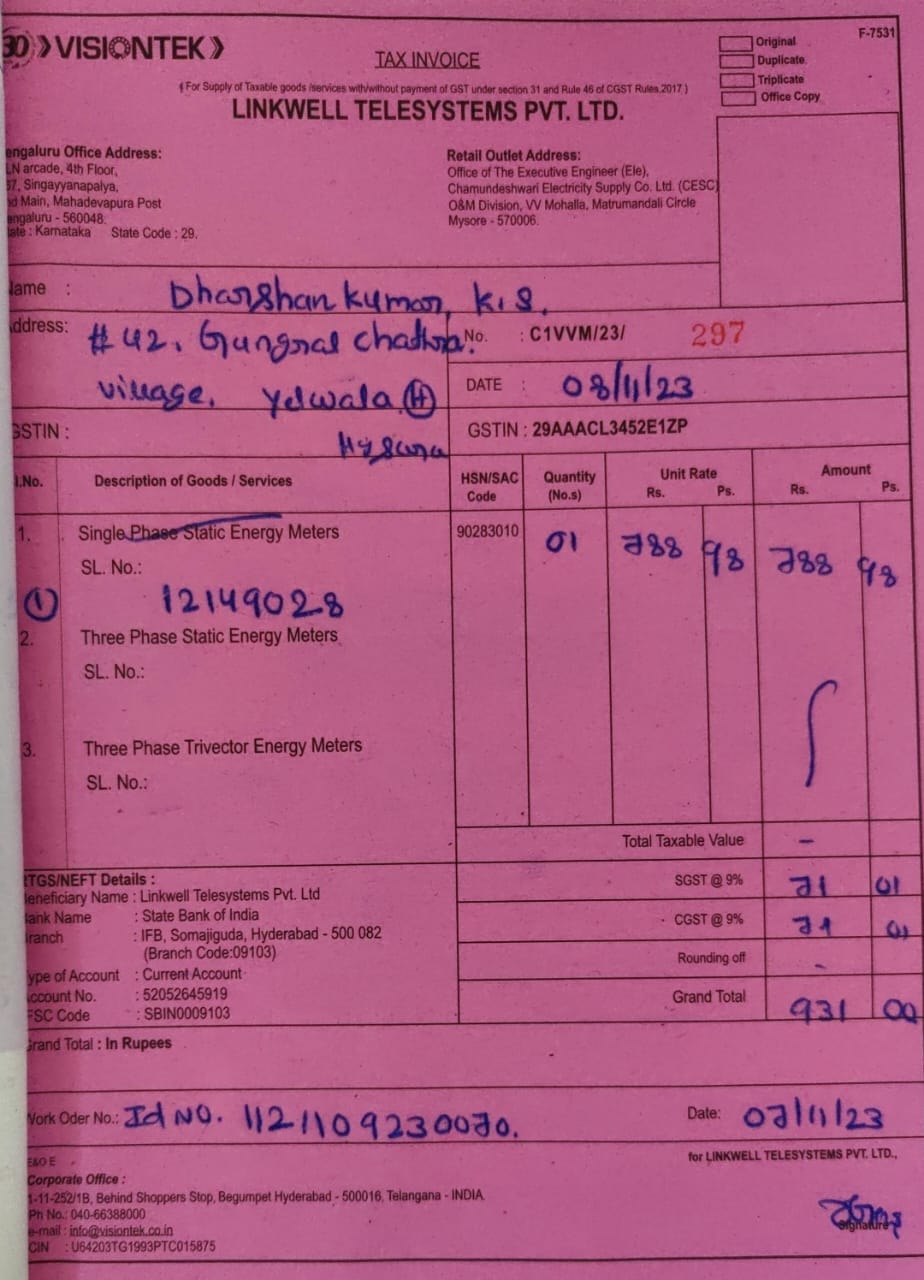 30 》VISIONTEK》
TAX INVOICE
( For Supply of Taxable goods /services with/without payment of GST under section 31 and Rule 46 of CGST Rules,2017 )
LINKWELL TELESYSTEMS PVT. LTD.
F-7531
Original
Duplicate
Triplicate
Office Copy
engaluru Office Address:
LN arcade, 4th Floor,
37, Singayyanapalya,
nd Main, Mahadevapura Post
engaluru - 560048.
ate : Karnataka State Code : 29.
Retail Outlet Address:
Office of The Executive Engineer (Ele),
Chamundeshwari Electricity Supply Co. Ltd. (CESC)
O&M Division, VV Mohalla, Matrumandali Circle
Mysore - 570006.
Name : Dharshan kumar, K.S.
Address: #42, Gungral chathra.
village. Yelwala (H)
No. : C1VVM/23/ 297
DATE : 08/11/23
GSTIN :
GSTIN : 29AAACL3452E1ZP
l.No. Description of Goods / Services HSN/SAC Code Quantity (No.s) Unit Rate Rs. Ps. Amount Rs. Ps.
1. Single Phase Static Energy Meters 90283010 01 788 98 788 98
SL. No.:
① 12149028
2. Three Phase Static Energy Meters
SL. No.:
3. Three Phase Trivector Energy Meters
SL. No.:
Total Taxable Value -
SGST @ 9% 71 01
CGST @ 9% 71 01
Rounding off -
Grand Total 931 00
RTGS/NEFT Details :
Beneficiary Name : Linkwell Telesystems Pvt. Ltd
Bank Name : State Bank of India
Branch : IFB, Somajiguda, Hyderabad - 500 082
(Branch Code:09103)
Type of Account : Current Account
Account No. : 52052645919
FSC Code : SBIN0009103
Grand Total : In Rupees
Work Oder No.: Id NO. 1121109230070.
Date: 07/11/23
E&O E
for LINKWELL TELESYSTEMS PVT. LTD.,
Corporate Office :
1-11-252/1B, Behind Shoppers Stop, Begumpet Hyderabad - 500016, Telangana - INDIA.
Ph No.: 040-66388000
e-mail : info@visiontek.co.in
CIN : U64203TG1993PTC015875
Signature